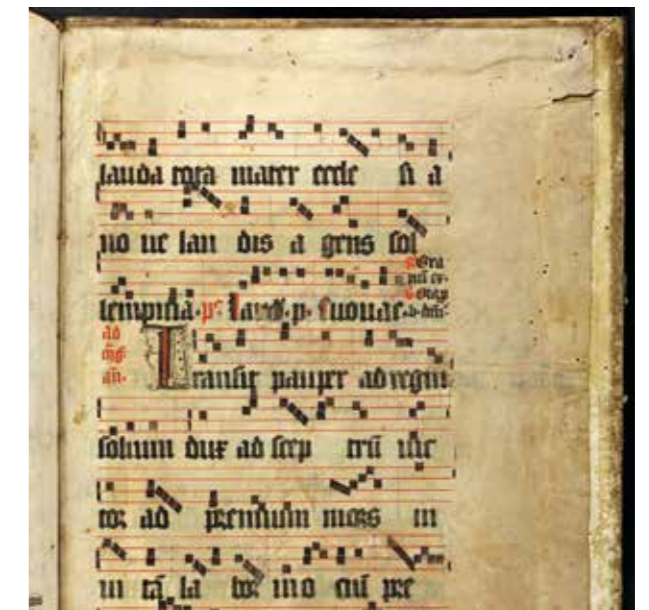 lauda tota mater eccle si a
no ue lau dis a gens sol
lempnia. ps Laud. p. Euouae.
ad
mag̃
añ.
Transit pauper ad regni
solium dux ad scep trũ vic
tor ad premium mors in
ui tã la bor in o ciũ pre